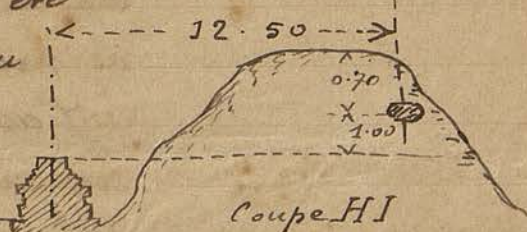 en
12.50
u
0.70
1.00
Coupe HI